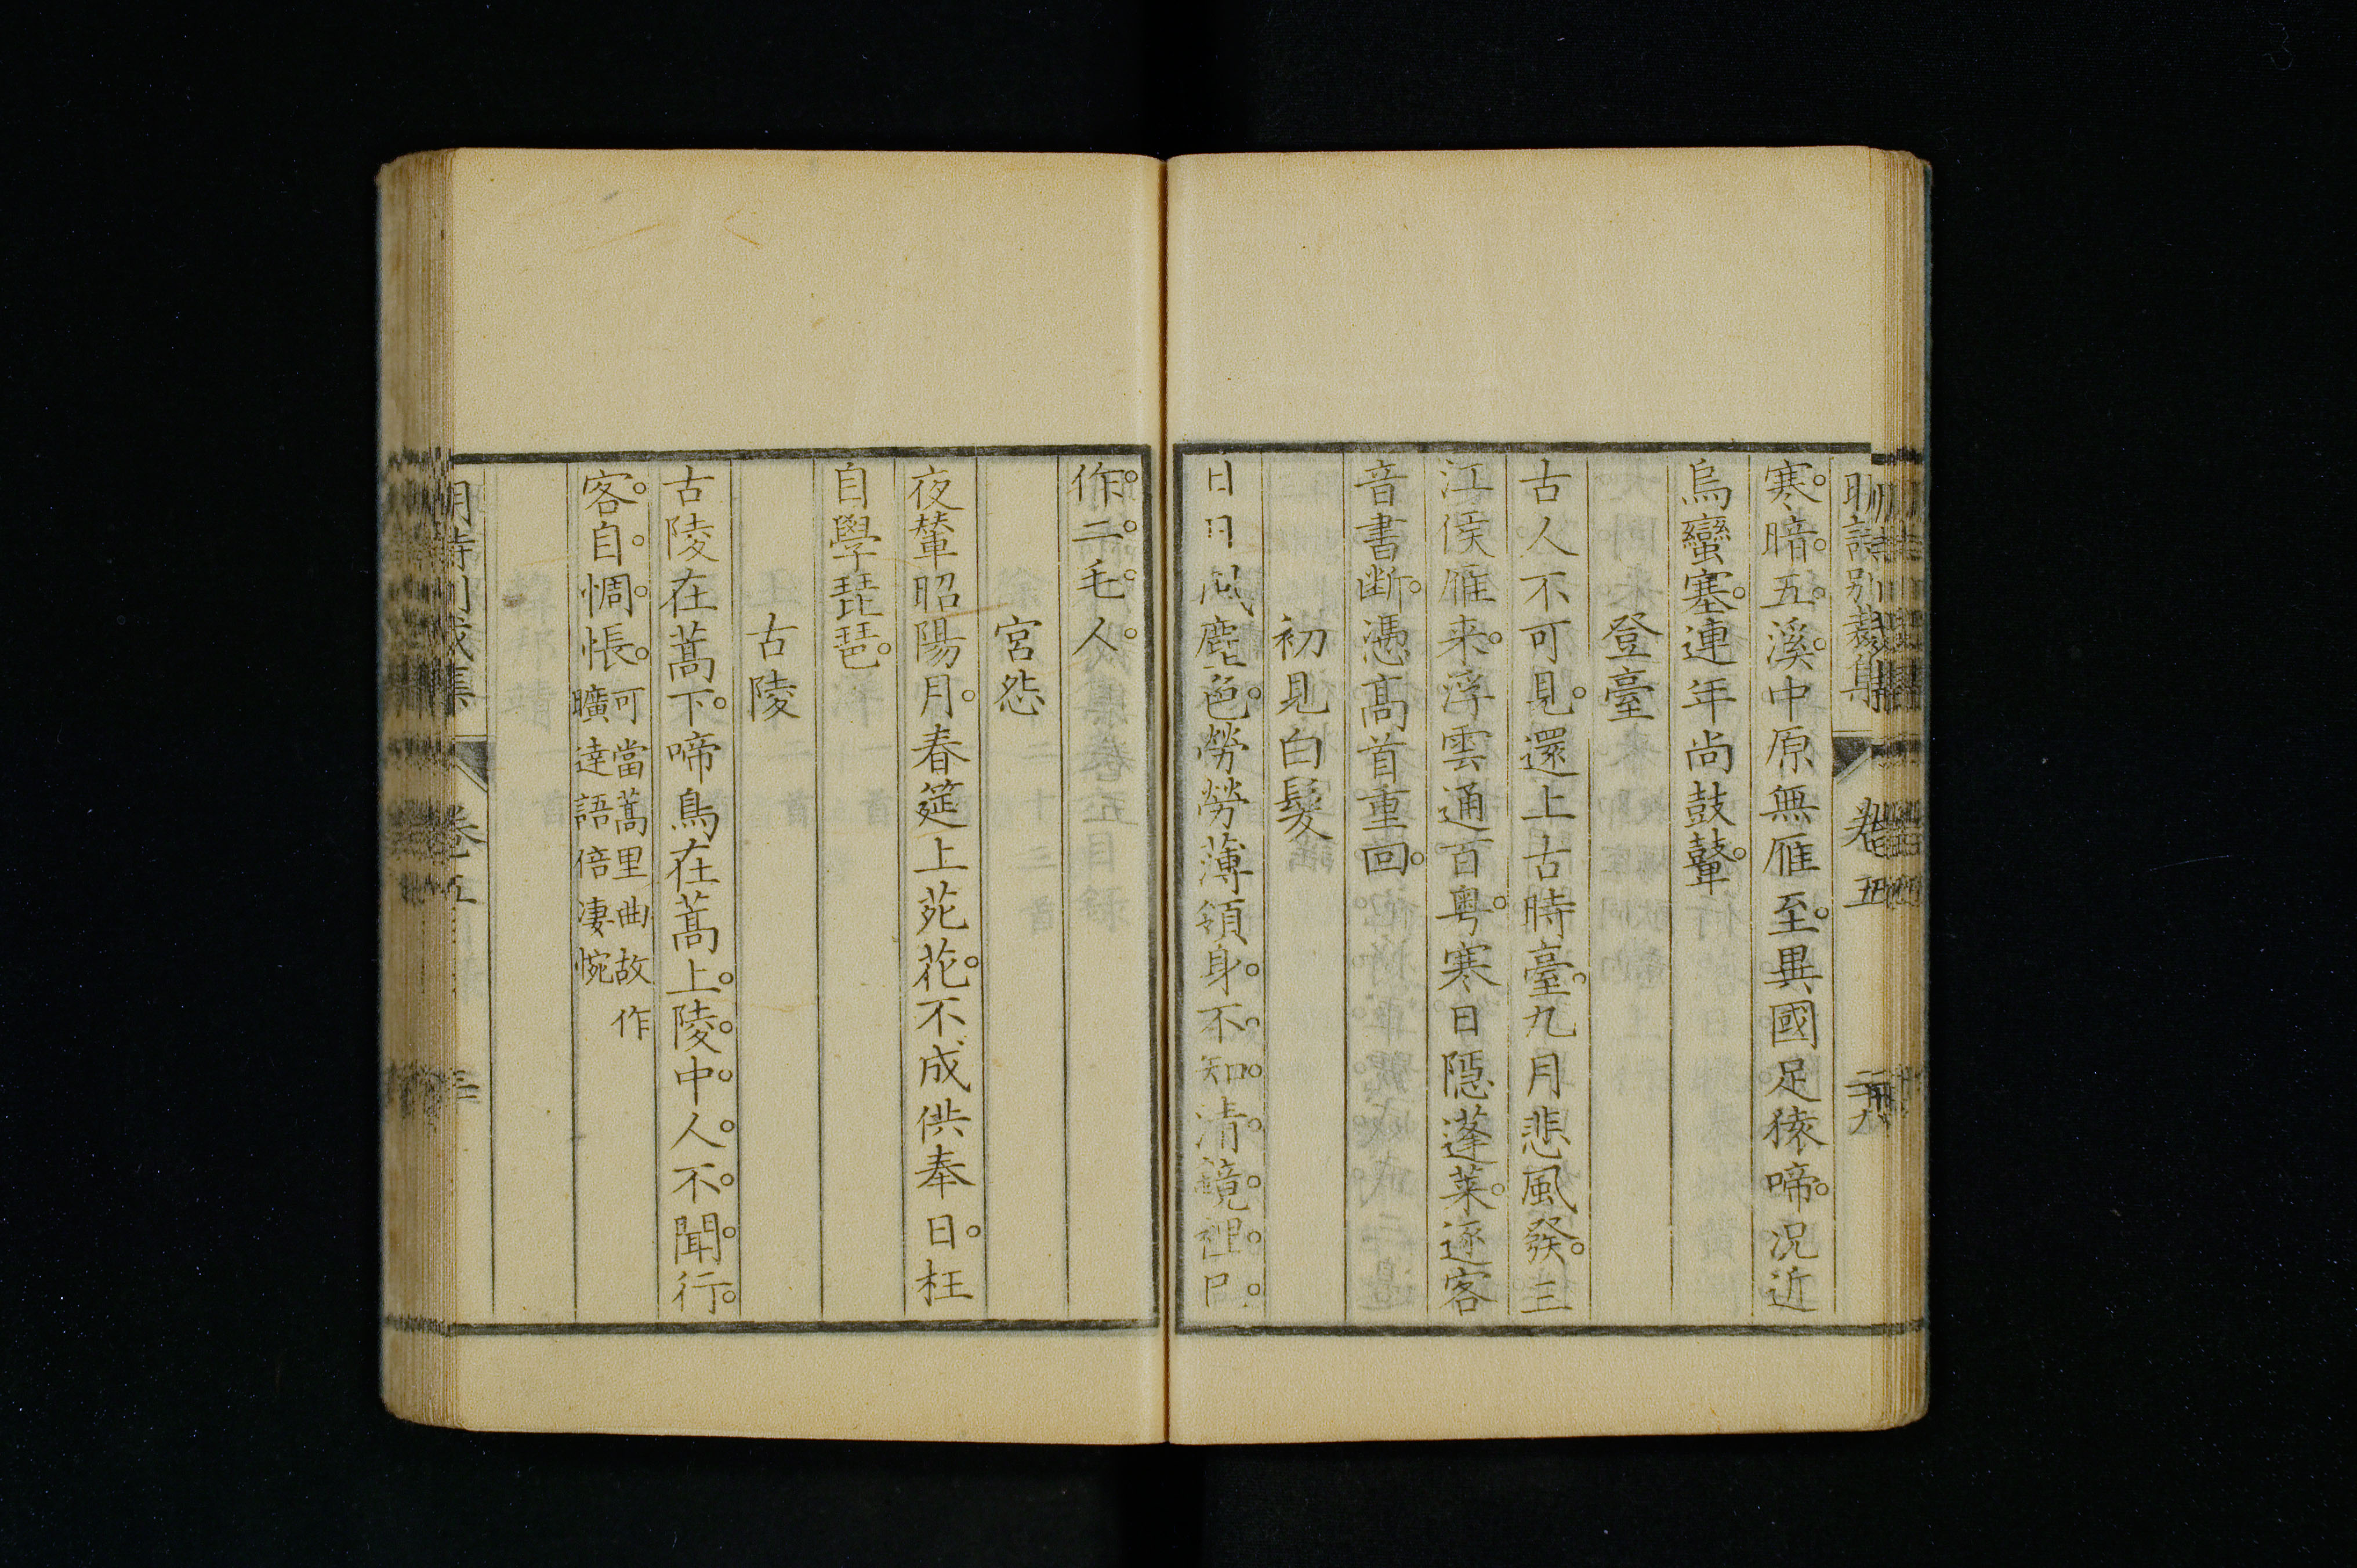 明詩別裁集 卷五
寒。暗。五。溪。中原無雁至。異國足猿啼。況近
烏蠻塞。連年尚鼓鼙。
登臺
古人不可見。還上古時臺。九月悲風發。三
江侯雁来。浮雲通百粤。寒日隱蓬萊。逐客
音書斷。憑高首重回。
初見白髮
日日風塵色。勞勞薄領身。不。知。清。鏡。裡。
作。二。毛。人。
宮怨
夜輦昭陽月。春筵上苑花。不成供奉日。枉
自學琵琶。
古陵
古陵在蒿下。啼鳥在蒿上。陵。中。人。不。聞。行。
客。自。惆。悵。可當蒿里曲故作
曠達語倍凄惋
明詩別裁集 卷五